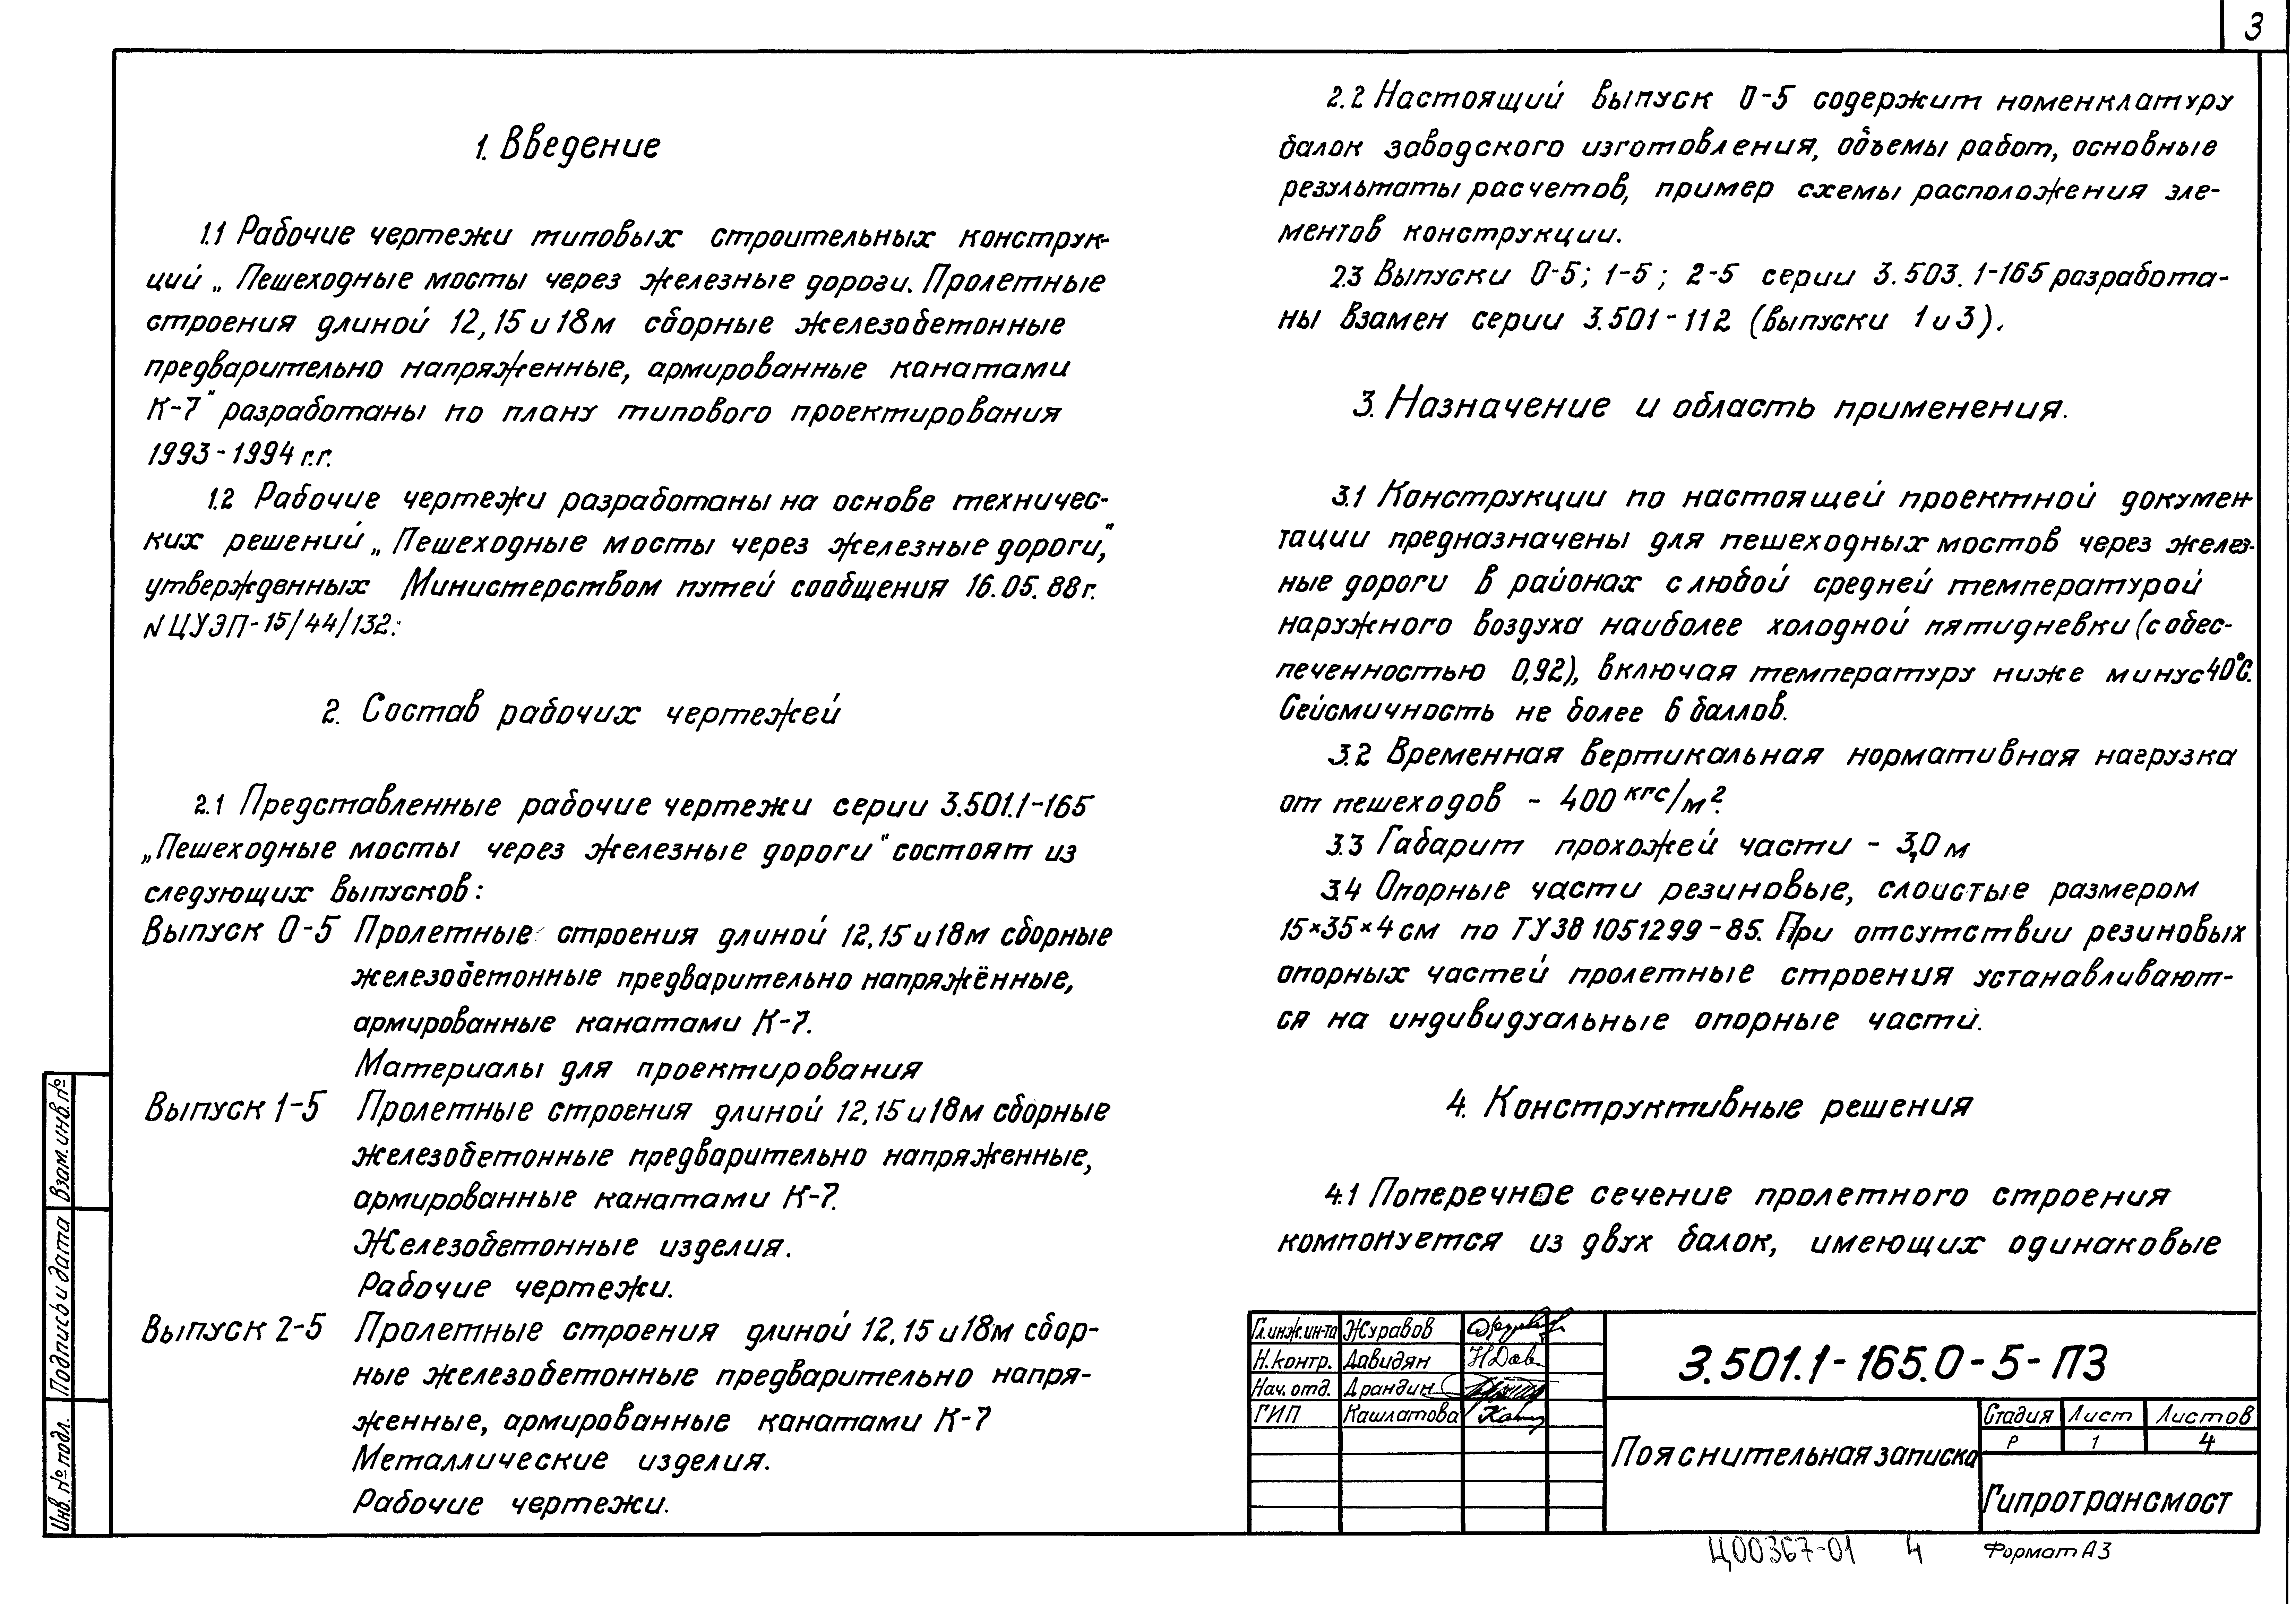 3
1. Введение
1.1 Рабочие чертежи типовых строительных конструк-
ций „Пешеходные мосты через железные дороги. Пролетные
строения длиной 12,15 и 18м сборные железобетонные
предварительно напряженные, армированные канатами
К-7" разработаны по плану типового проектирования
1993-1994 г.г.
1.2 Рабочие чертежи разработаны на основе техничес-
ких решений „Пешеходные мосты через железные дороги",
утвержденных Министерством путей сообщения 16.05.88г.
N ЦУЭП-15/44/132.
2. Состав рабочих чертежей
2.1 Представленные рабочие чертежи серии 3.501.1-165
„Пешеходные мосты через железные дороги" состоят из
следующих выпусков:
Выпуск 0-5 Пролетные строения длиной 12,15 и 18м сборные
железобетонные предварительно напряжённые,
армированные канатами К-7.
Материалы для проектирования
Выпуск 1-5 Пролетные строения длиной 12,15 и 18м сборные
железобетонные предварительно напряженные,
армированные канатами К-7.
Железобетонные изделия.
Рабочие чертежи.
Выпуск 2-5 Пролетные строения длиной 12,15 и 18м сбор-
ные железобетонные предварительно напря-
женные, армированные канатами К-7
Металлические изделия.
Рабочие чертежи.
2.2 Настоящий выпуск 0-5 содержит номенклатуру
балок заводского изготовления, объемы работ, основные
результаты расчетов, пример схемы расположения эле-
ментов конструкции.
2.3 Выпуски 0-5; 1-5; 2-5 серии 3.503.1-165 разработа-
ны взамен серии 3.501-112 (выпуски 1 и 3).
3. Назначение и область применения.
3.1 Конструкции по настоящей проектной докумен-
тации предназначены для пешеходных мостов через желез-
ные дороги в районах с любой средней температурой
наружного воздуха наиболее холодной пятидневки (с обес-
печенностью 0,92), включая температуру ниже минус 40°С.
Сейсмичность не более 6 баллов.
3.2 Временная вертикальная нормативная нагрузка
от пешеходов - 400 кгс/м².
3.3 Габарит прохожей части - 3,0 м
3.4 Опорные части резиновые, слоистые размером
15×35×4 см по ТУ38 1051299-85. При отсутствии резиновых
опорных частей пролетные строения устанавливают-
ся на индивидуальные опорные части.
4. Конструктивные решения
4.1 Поперечное сечение пролетного строения
компонуется из двух балок, имеющих одинаковые
Взам. инв. №
Подпись и дата
Инв. № подл.
Гл. инж. ин-та Журавов
Н. контр. Давидян Н Дав
Нач. отд. Драндин
ГИП Кашлатова
3.501.1-165.0-5-ПЗ
Пояснительная записка
Стадия Лист Листов
Р 1 4
Гипротрансмост
Ц00367-01 4 Формат А3